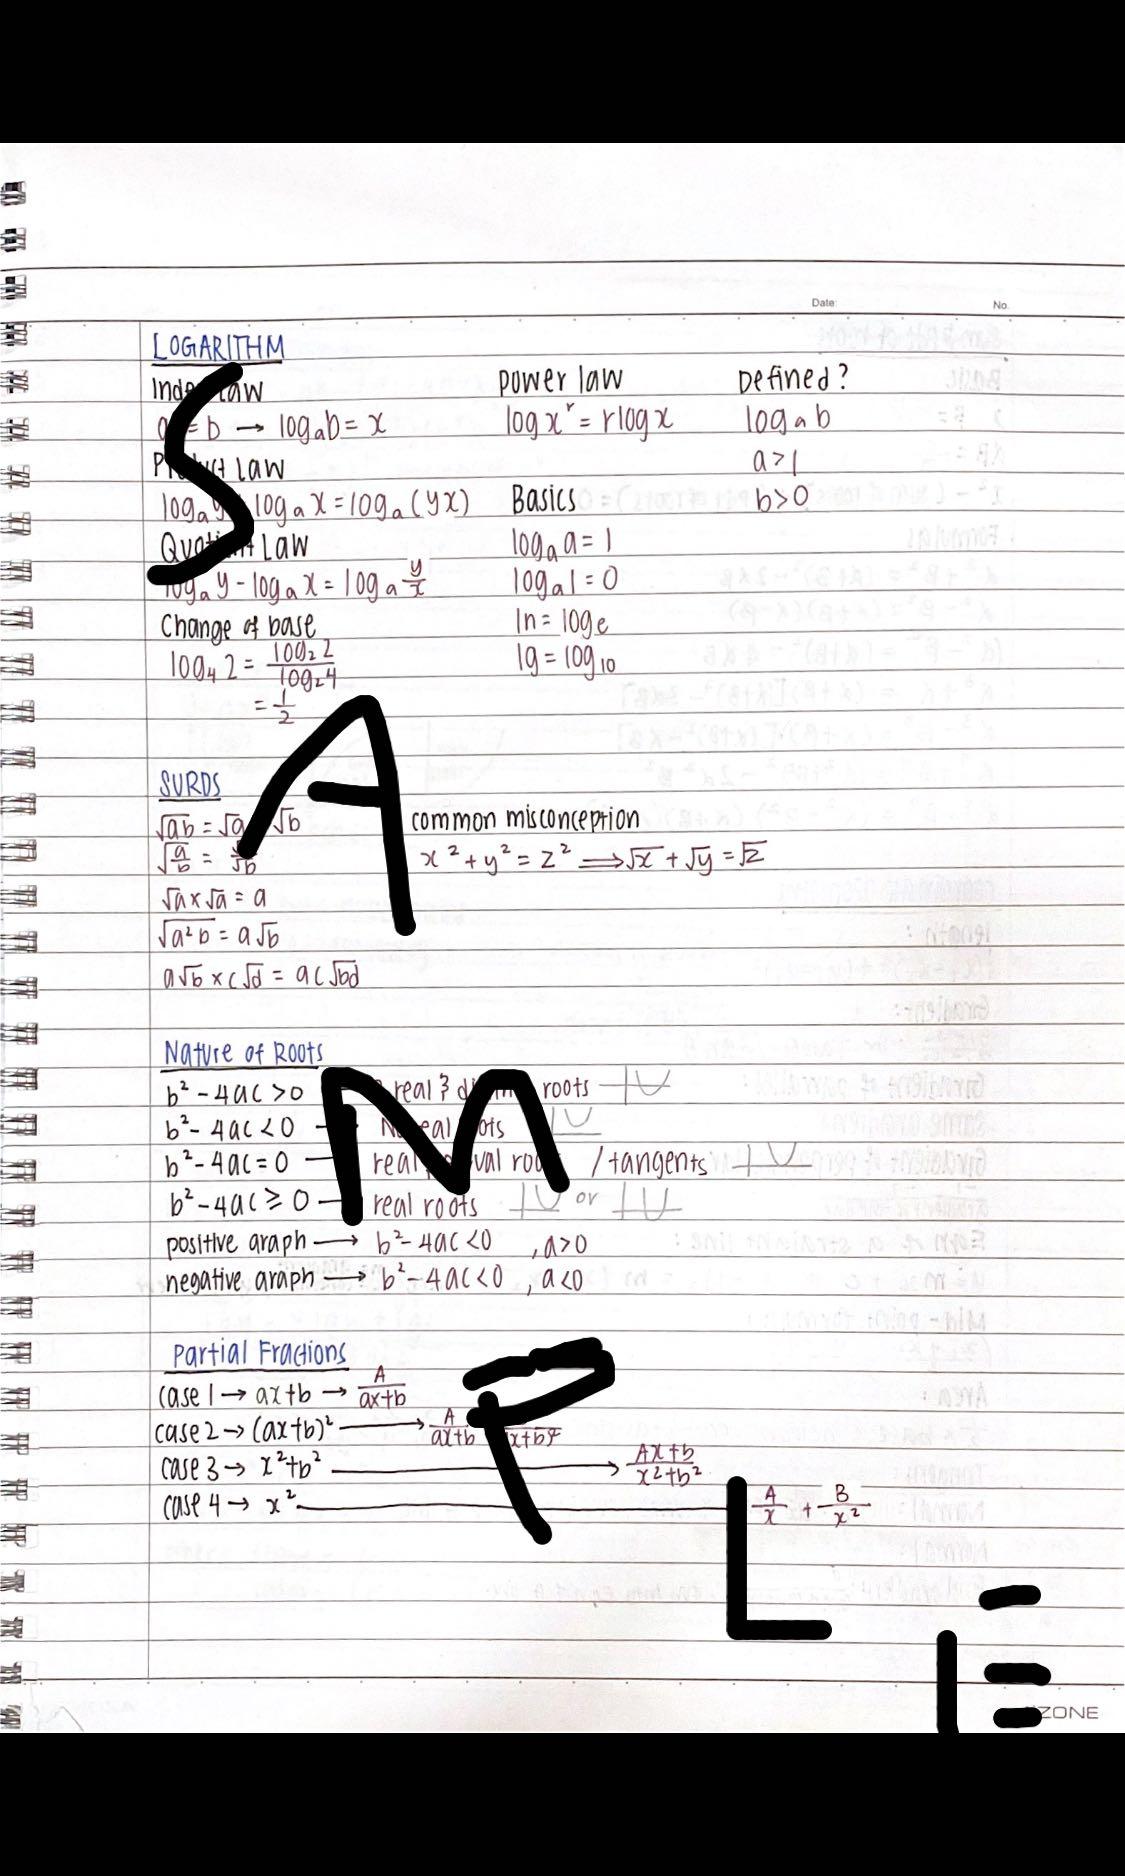 Date:
No.
LOGARITHM
Law
b → logₐb = x
Law
logₐ logₐx = logₐ(yx)
Law
logₐy - logₐx = logₐ y/x
Change of base
log₄2 = log₂2/log₂4
= 1/2
power law
log xʳ = r log x
Basics
logₐa = 1
logₐ1 = 0
ln = logₑ
lg = log₁₀
Defined?
logₐb
a>1
b>0
SURDS
√ab = √a √b
√a/b =
√a × √a = a
√a²b = a√b
a√b × c√d = ac√bd
common misconception
x² + y² = z² ⟹ √x + √y = √z
Nature of Roots
b² - 4ac > 0 real & roots
b² - 4ac < 0
b² - 4ac = 0 real / tangents
b² - 4ac ≥ 0 real roots or
positive graph → b² - 4ac < 0 , a>0
negative graph → b² - 4ac < 0 , a<0
Partial Fractions
case 1 → ax+b → A/ax+b
case 2 → (ax+b)² → A/ax+b
case 3 → x²+b² → Ax+b/x²+b²
case 4 → x² A/x + B/x²
SAMPLE
ZONE